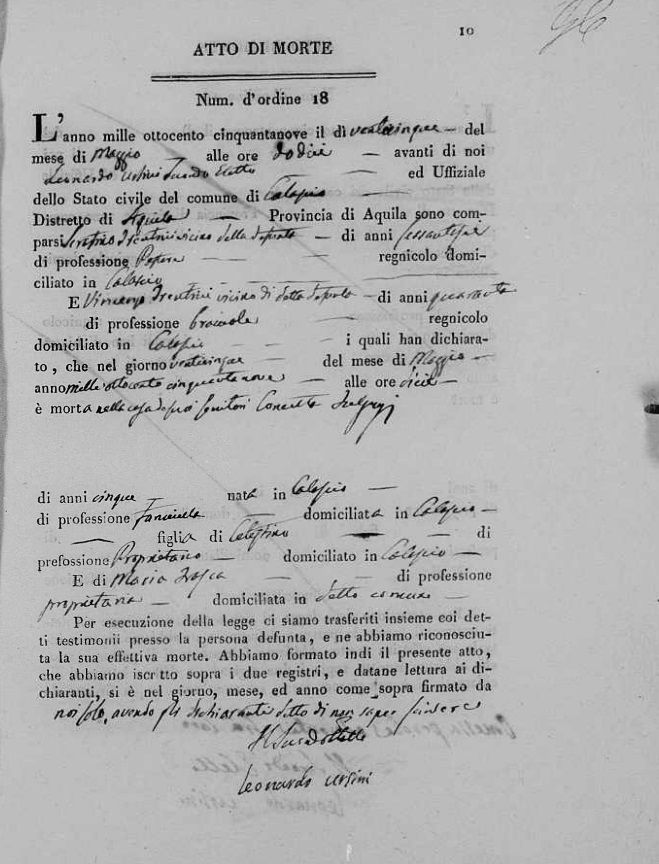 10
ATTO DI MORTE
Num. d'ordine 18
L'anno mille ottocento cinquantanove il dì venticinque — del
mese di Maggio alle ore dodici — avanti di noi
Leonardo Ursini Secondo Eletto — ed Uffiziale
dello Stato civile del comune di Calascio
Distretto di Aquila — Provincia di Aquila sono com-
parsi Trentini vicino della — di anni
di professione — regnicolo domi-
ciliato in Calascio
E Vincenzo Trentini vicino di detta — di anni quaranta
di professione — regnicolo
domiciliato in Calascio — i quali han dichiara-
to, che nel giorno venticinque — del mese di Maggio —
anno mille ottocento cinquantanove — alle ore dieci —
è morta nella casa de' suoi genitori Concetta
di anni cinque — nata in Calascio —
di professione Fanciulla — domiciliata in Calascio —
— figlia di Celestino — — di
prefossione Proprietario — domiciliato in Calascio —
E di Maria — — di professione
proprietaria — domiciliata in detto comune —
Per esecuzione della legge ci siamo trasferiti insieme coi det-
ti testimonii presso la persona defunta, e ne abbiamo riconosciu-
ta la sua effettiva morte. Abbiamo formato indi il presente atto,
che abbiamo iscritto sopra i due registri, e datane lettura ai di-
chiaranti, si è nel giorno, mese, ed anno come sopra firmato da
noi solo, avendo gli dichiaranti detto di non saper scrivere
Il Secdo Eletto
Leonardo Ursini